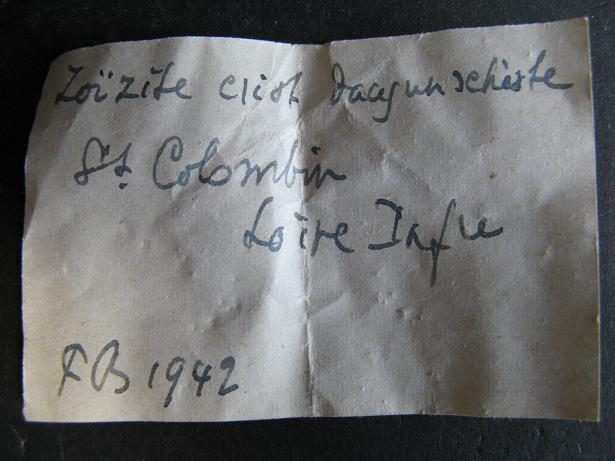 Zoïzite crist dans un schiste
St Colombin
Loire Infre
FB 1942